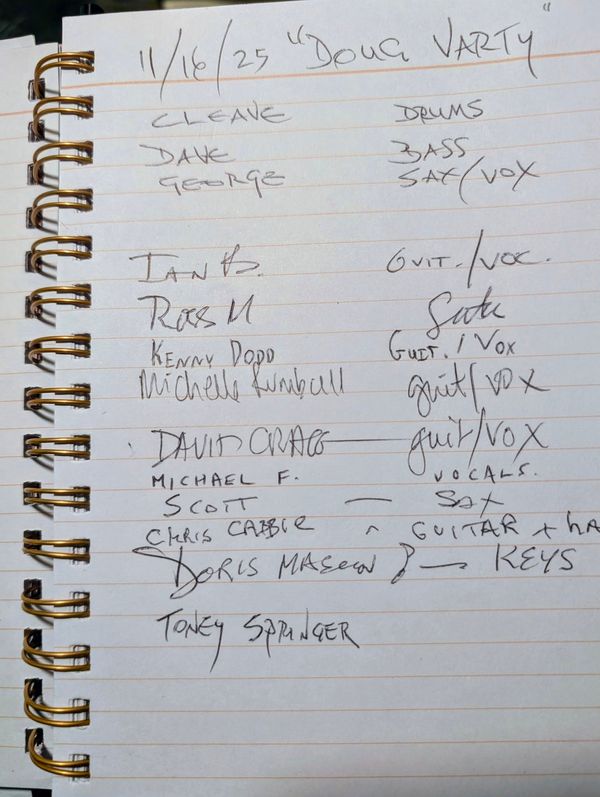 11/16/25 "DOUG VARTY"
CLEAVE DRUMS
DAVE BASS
GEORGE SAX/VOX
IAN B. GUIT./VOC.
ROSS M
KENNY DODD GUIT./VOX
Michelle Rumball guit/VOX
DAVID guit/VOX
MICHAEL F. VOCALS.
SCOTT — SAX
CHRIS GUITAR +
DORIS — KEYS
TONEY SPRINGER